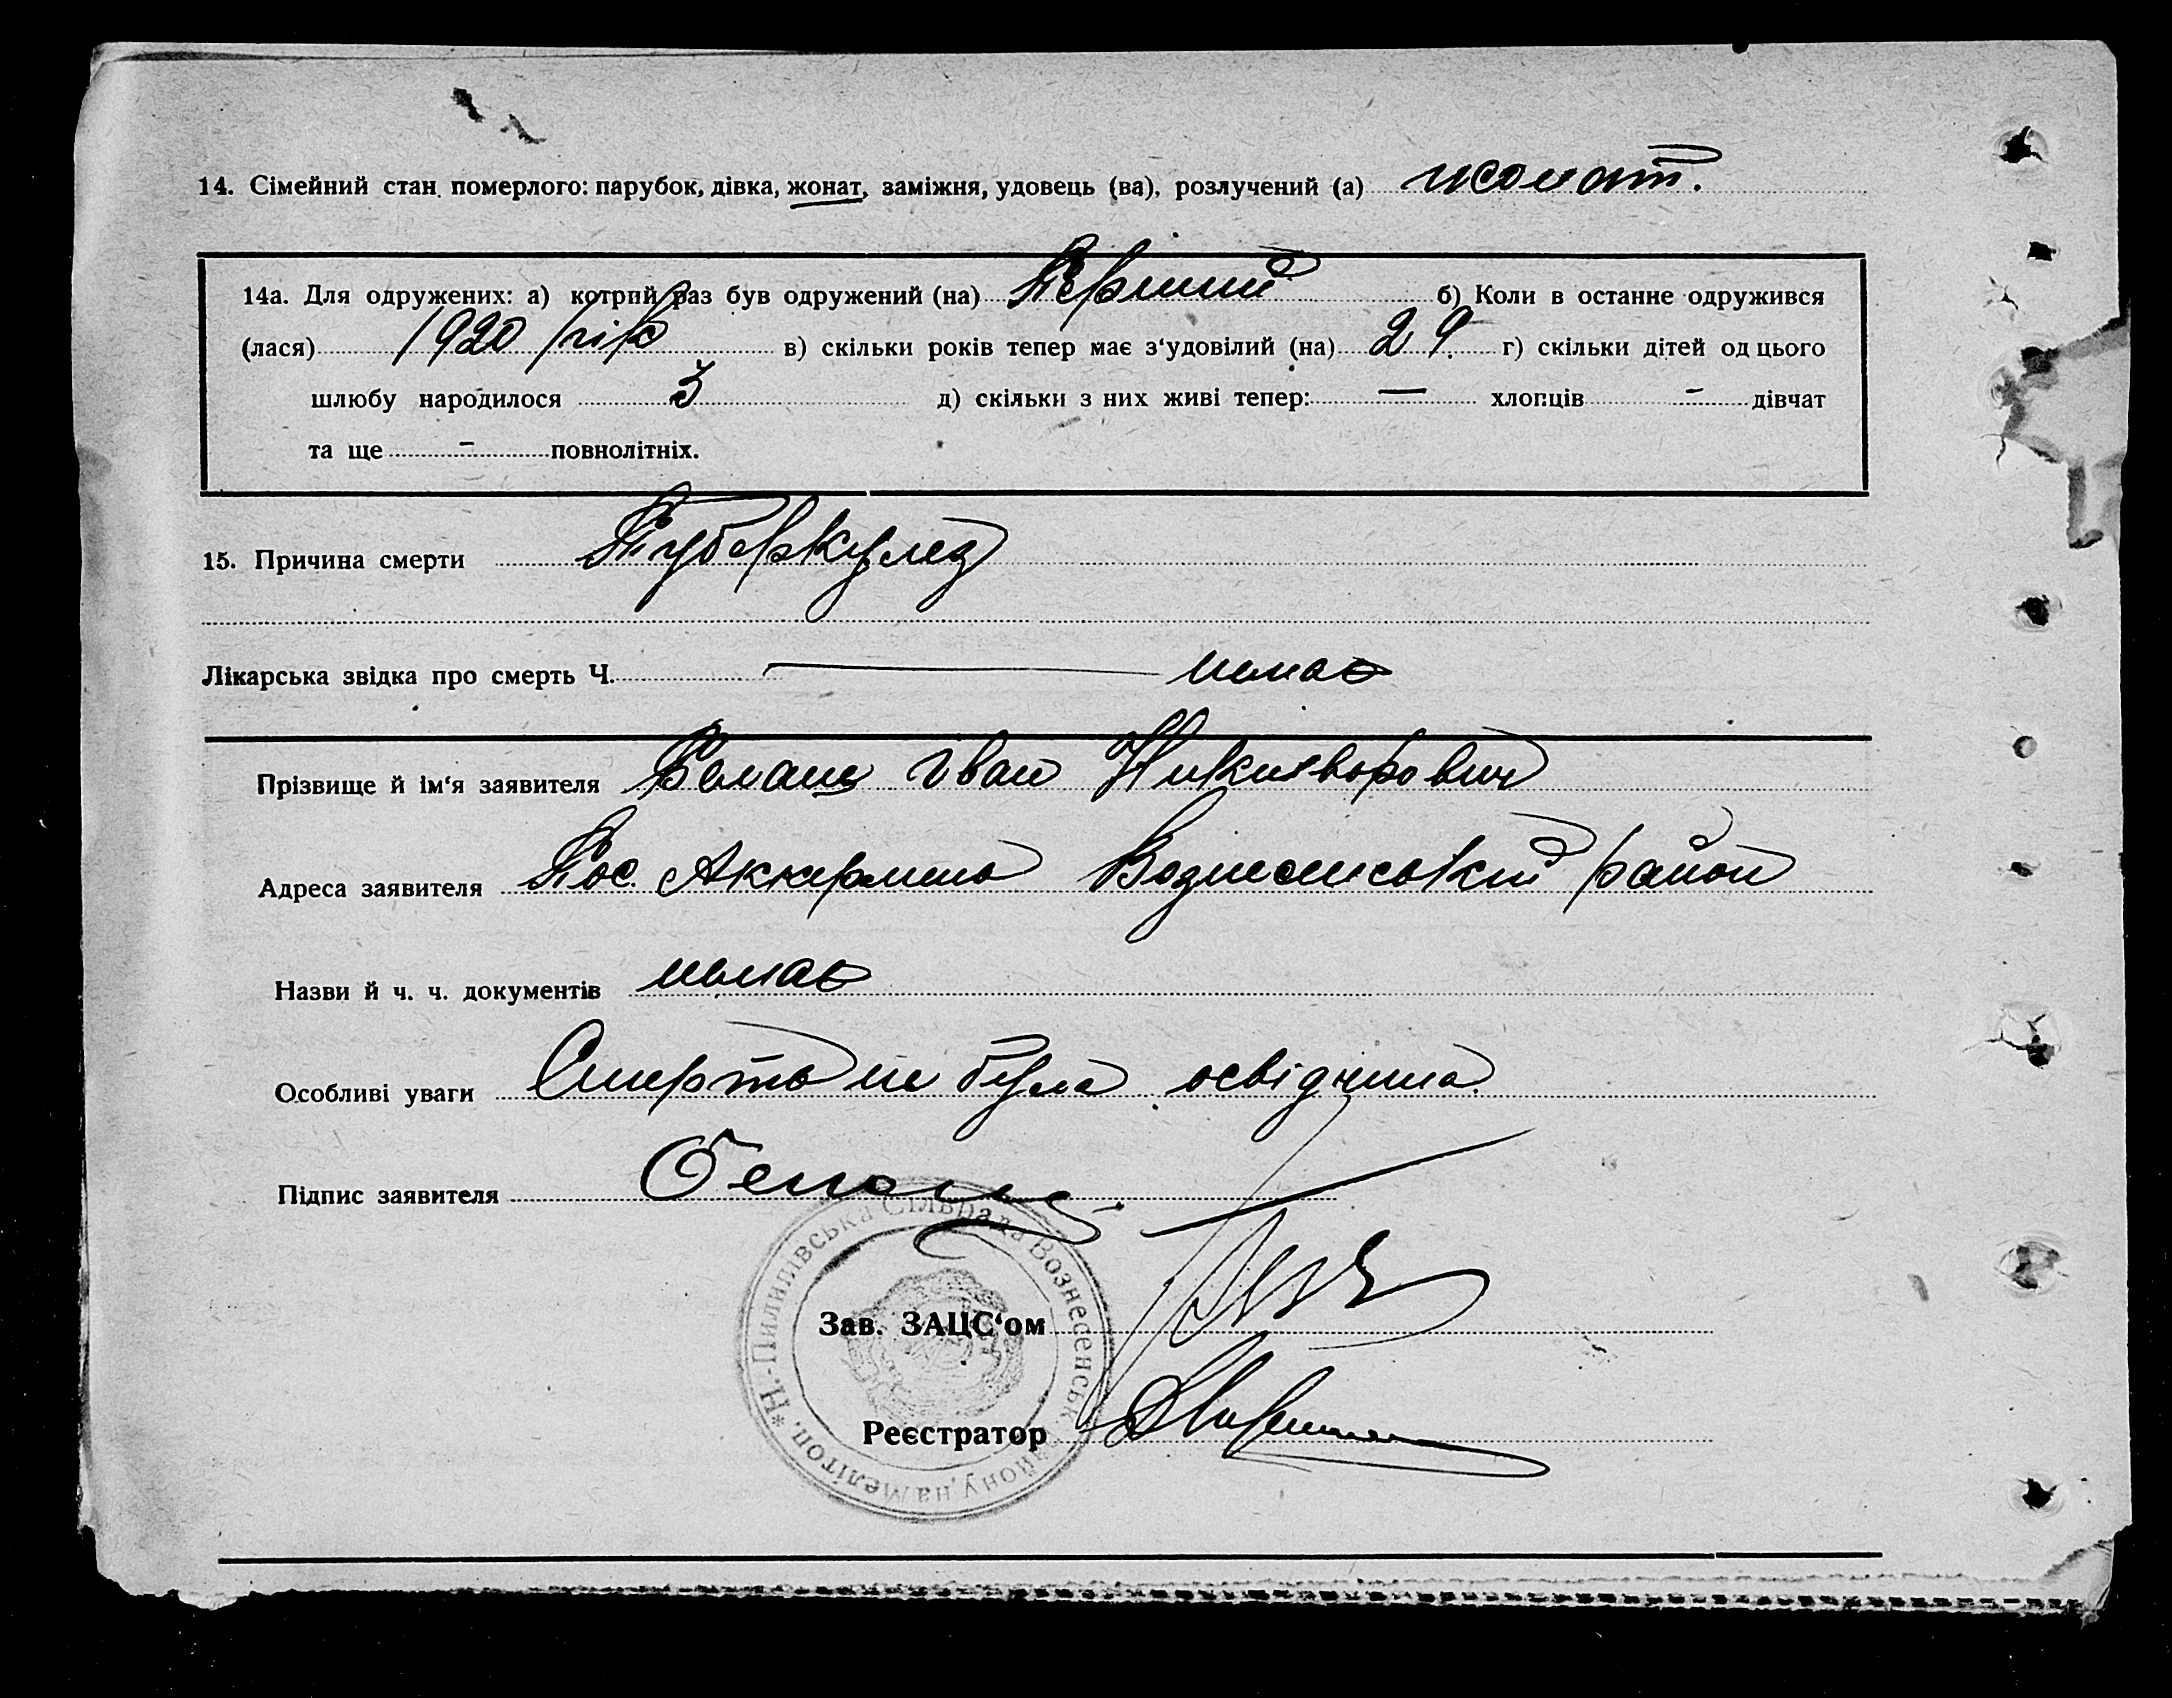 14. Сімейний стан померлого: парубок, дівка, жонат, заміжня, удовець (ва), розлучений (а) жонат.
14а. Для одружених: а) котрий раз був одружений (на) Перший б) Коли в останне одружився
(лася) 1920 рік в) скільки років тепер має з‘удовілий (на) 29 г) скільки дітей од цього
шлюбу народилося 3 д) скільки з них живі тепер: — хлопців - дівчат
та ще - повнолітніх.
15. Причина смерти Туберкулез
Лікарська звідка про смерть Ч. — немає
Прізвище й ім‘я заявителя Белаш Іван Никифорович
Адреса заявителя Пос. Аккермень Вознесенський район
Назви й ч. ч. документів немає
Особливі уваги Смерть не була освідчина.
Підпис заявителя Белаш
Зав. ЗАЦС‘ом
Реєстратор
*Н.-Пилипівська Сільрада Вознесенськ району, на Мелітоп.